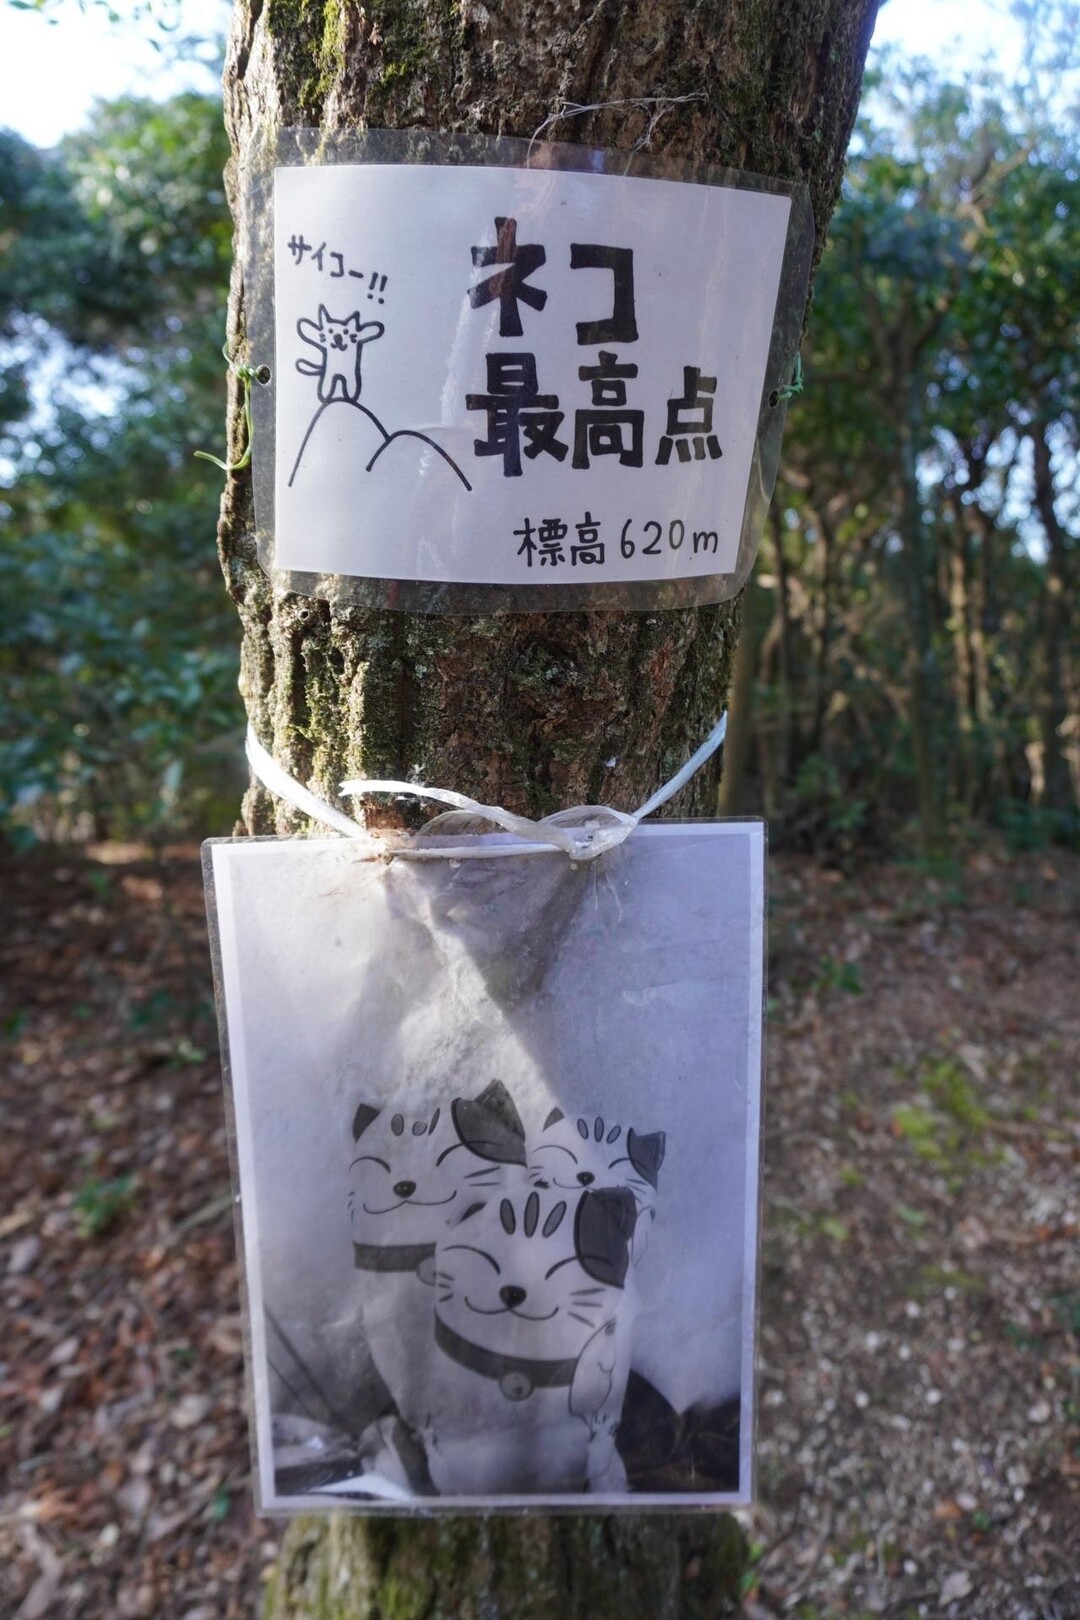 サイコー!!
ネコ
最高点
標高620m